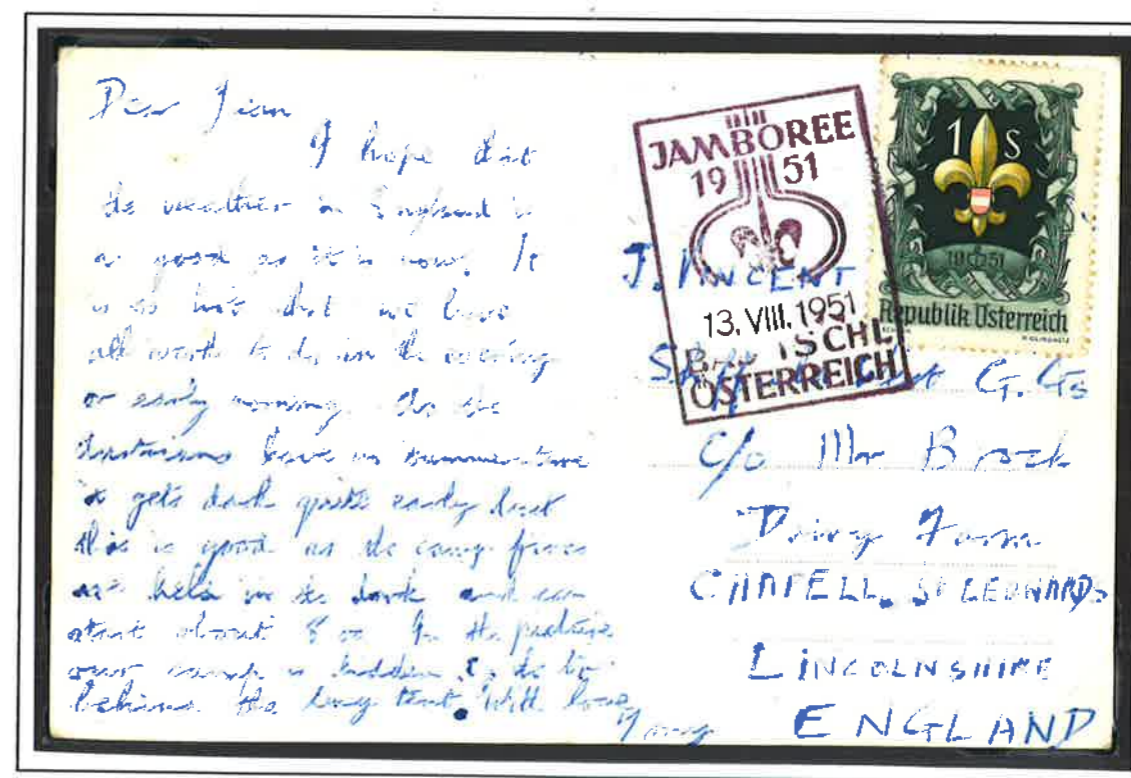 Dear Jean
I hope that
the weather in England is
as good as it is now. It
is so hot that we have
all work to do in the evening
or early morning. As the
Austrians have no summer time
it gets dark quite early but
this is good as the camp fires
are held in the dark and can
start about 8 00 In the picture
our camp is hidden by the
behind the long tent. With love
JAMBOREE
1951
13. VIII. 1951
BAD ISCHL
ÖSTERREICH
1 S
1951
Republik Österreich
J. VINCENT
G. Gs
C/o Mr Brock
Dairy Farm
CHAPELL. ST LEONARDS
LINCOLNSHIRE
ENGLAND